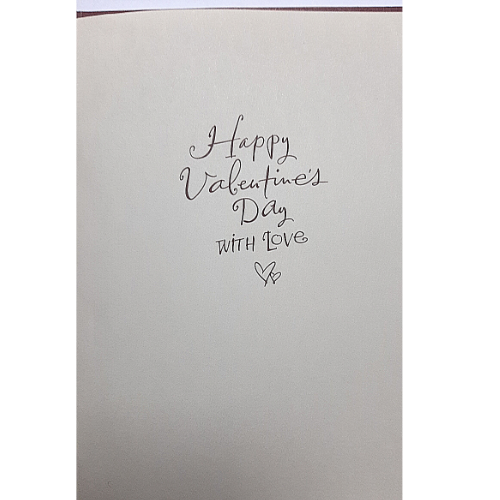 Happy
Valentine's
Day
WITH LOVE